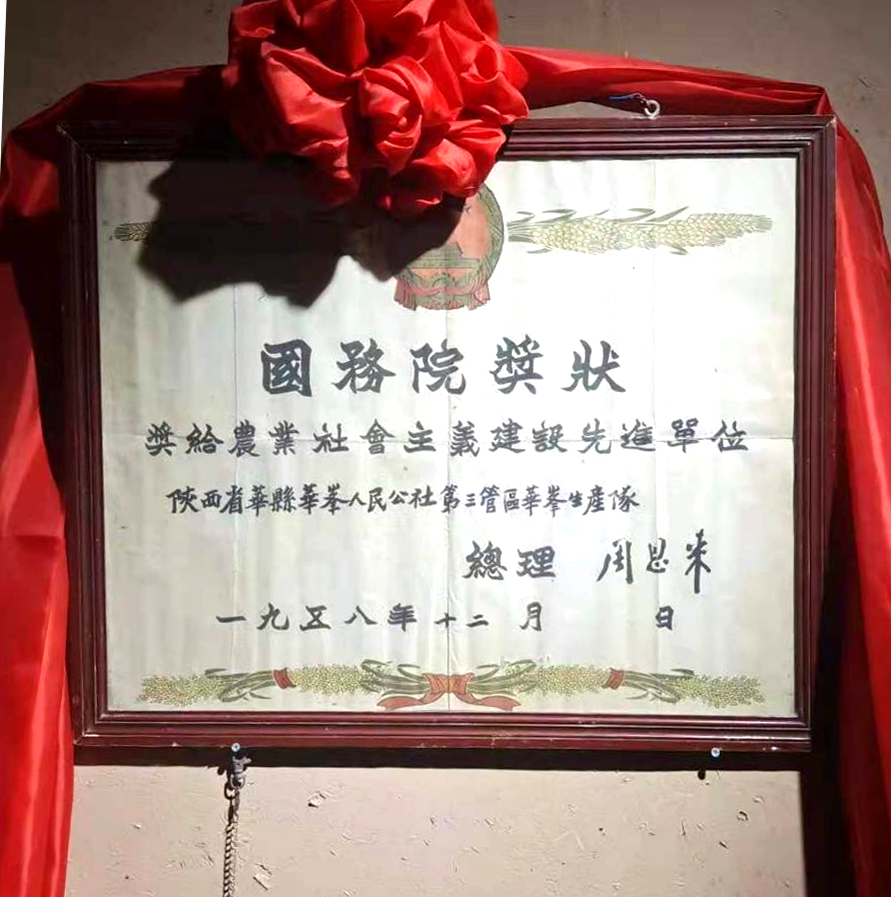 國務院獎狀
獎給農業社會主義建設先進單位
陝西省華縣華峯人民公社第三管區華峯生產隊
總理 周恩來
一九五八年十二月 日